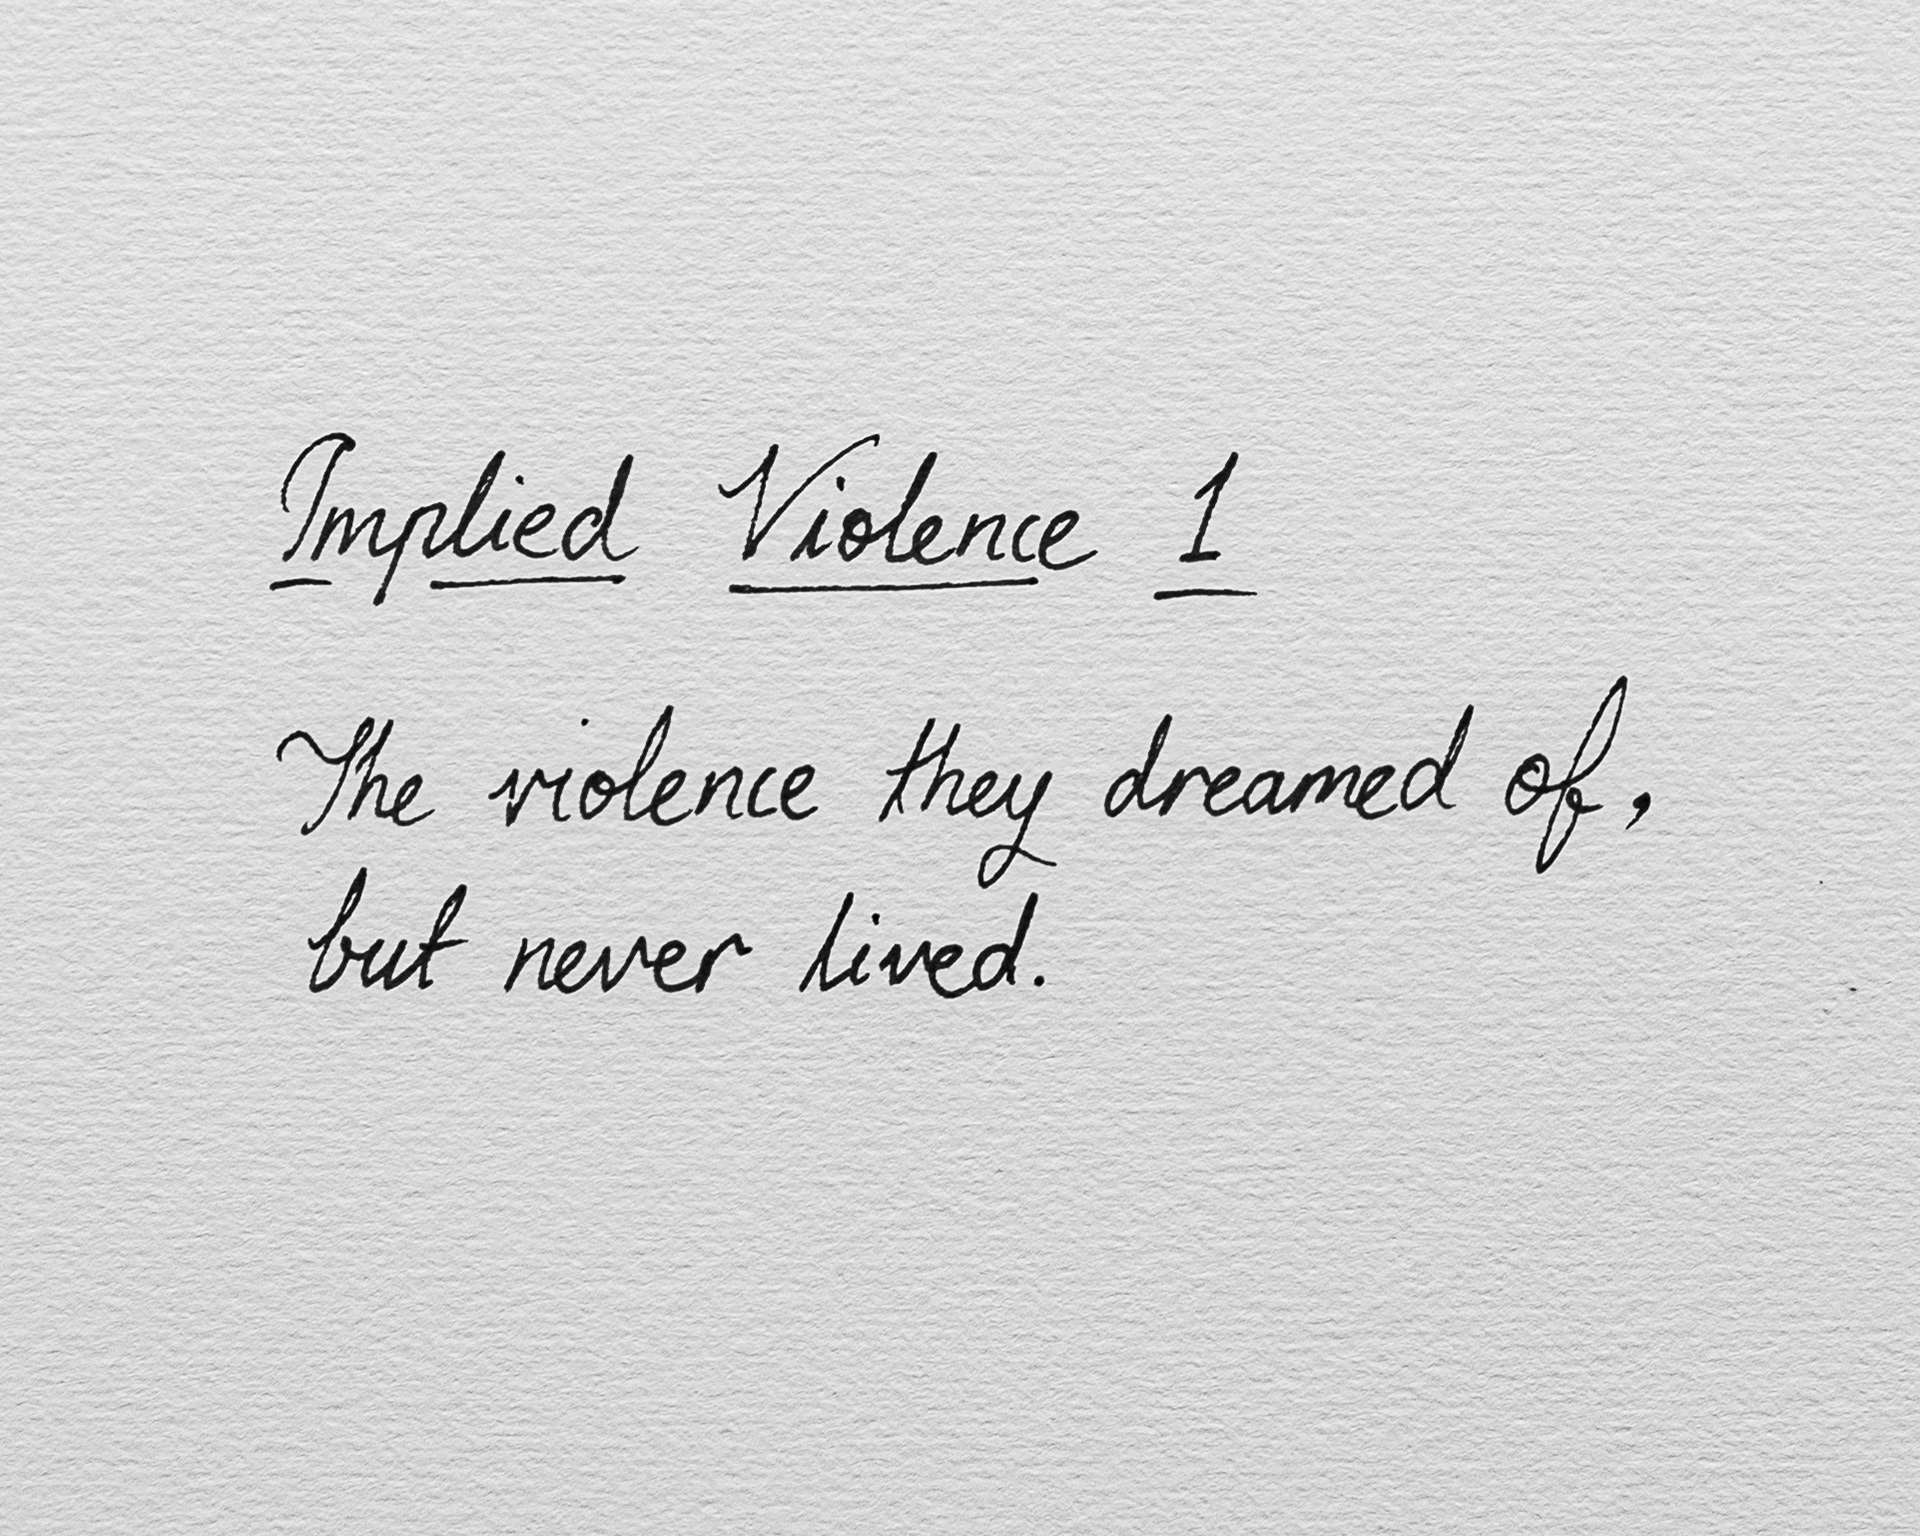 Implied Violence 1
The violence they dreamed of,
but never lived.